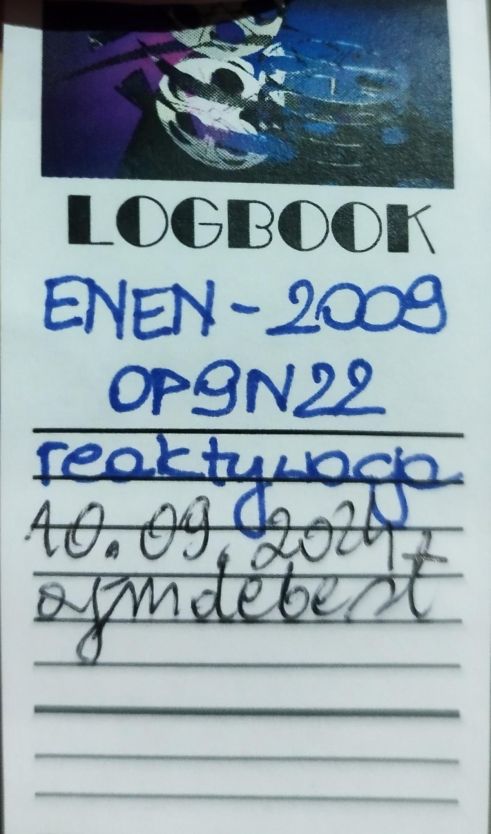 LOGBOOK
ENEN - 2009
OP9N22
reaktywacja
10.09.2024r